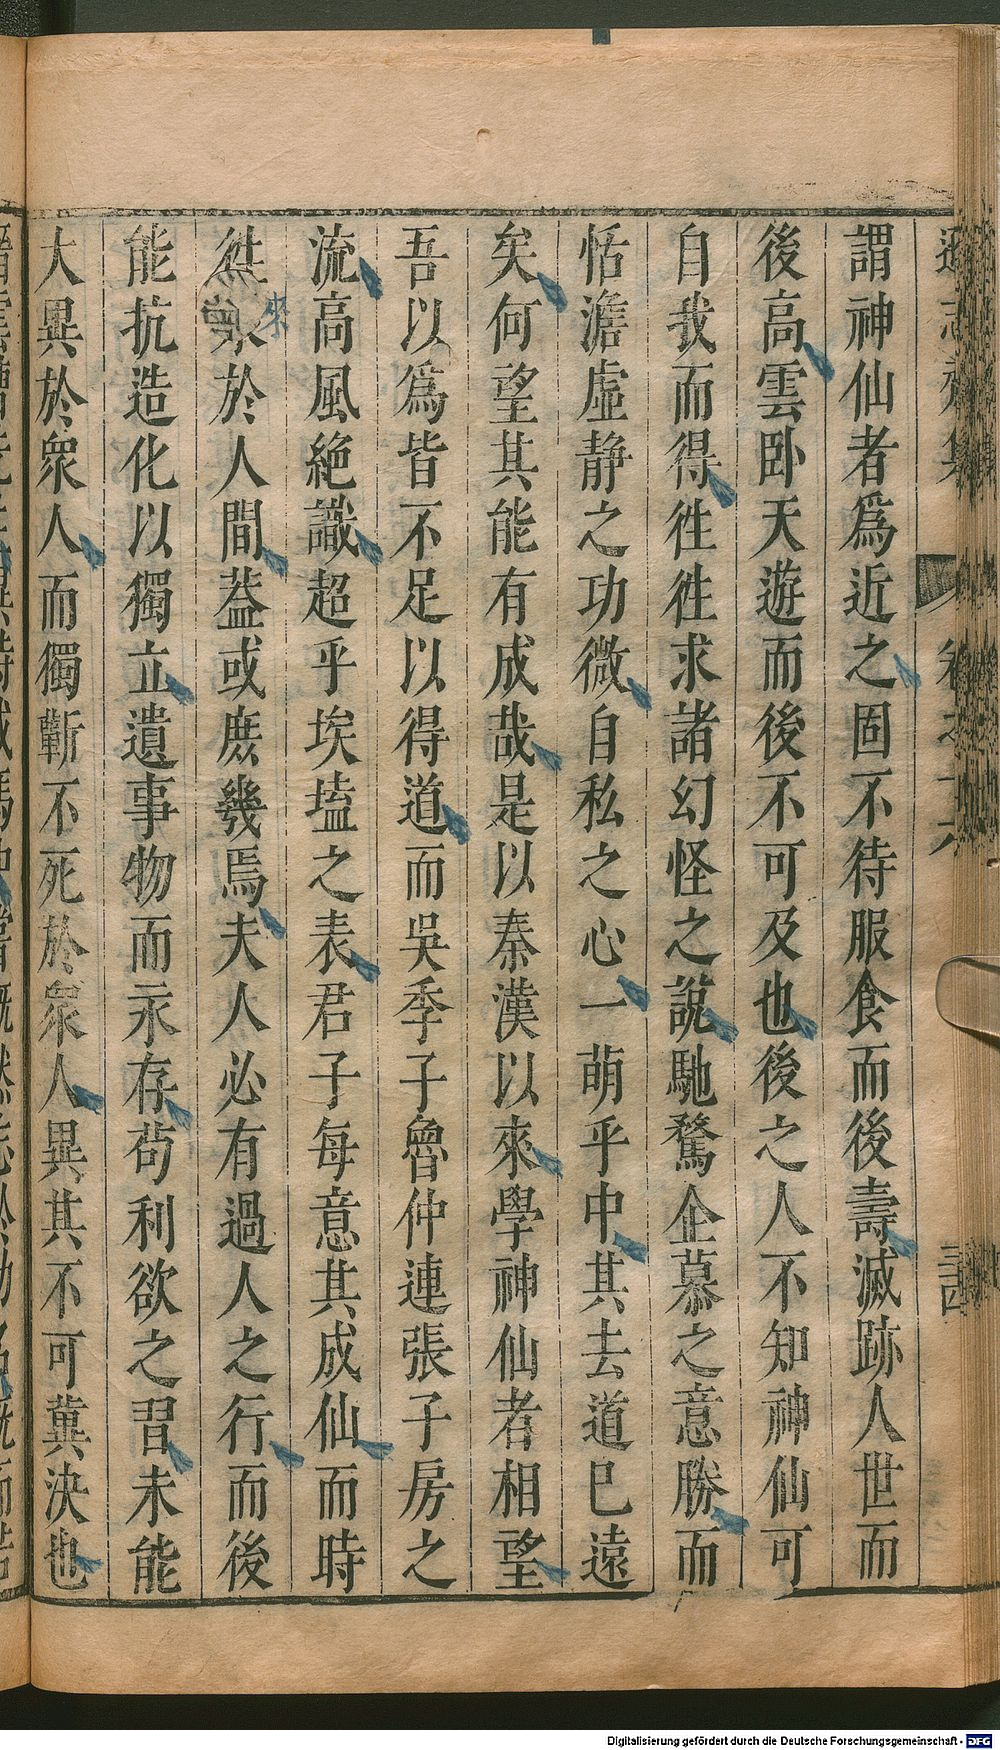 謂神仙者爲近之固不待服食而後壽滅跡人世而
後高雲臥天遊而後不可及也後之人不知神仙可
自我而得徃徃求諸幻怪之說馳騖企慕之意勝而
恬澹虛静之功微自私之心一萌乎中其去道巳遠
矣何望其能有成哉是以秦漢以來學神仙者相望
吾以爲皆不足以得道而吳季子魯仲連張子房之
流高風絶識超乎埃壒之表君子每意其成仙而時
來於人間葢或庶幾焉夫人必有過人之行而後
能抗造化以獨立遺事物而永存茍利欲之習未能
大異於衆人而獨蘄不死於衆人異其不可冀決也
遜志齋集
卷之十六
三四
Digitalisierung gefördert durch die Deutsche Forschungsgemeinschaft - DFG